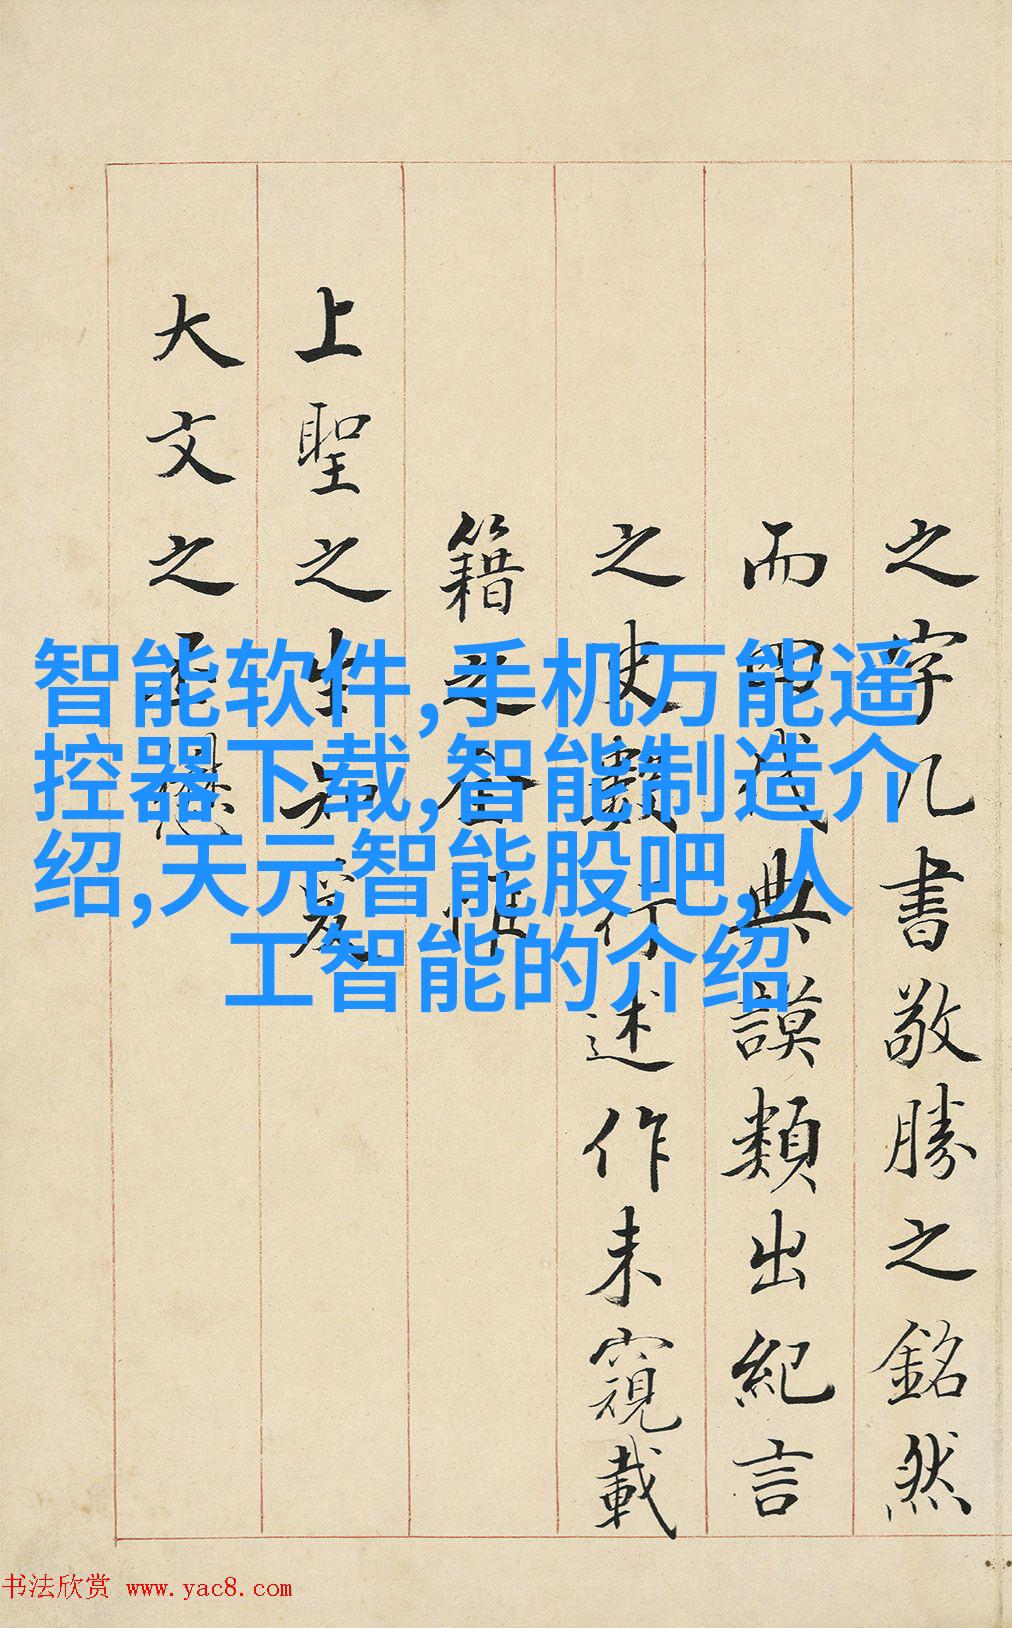 之字几書敬勝之銘然
而典謨類出紀言
之史行述作未窺載
籍之
上聖之生知爰
大文之
智能软件,手机万能遥
控器下载,智能制造介
绍,天元智能股吧,人
工智能的介绍
书法欣赏 www.yac8.com